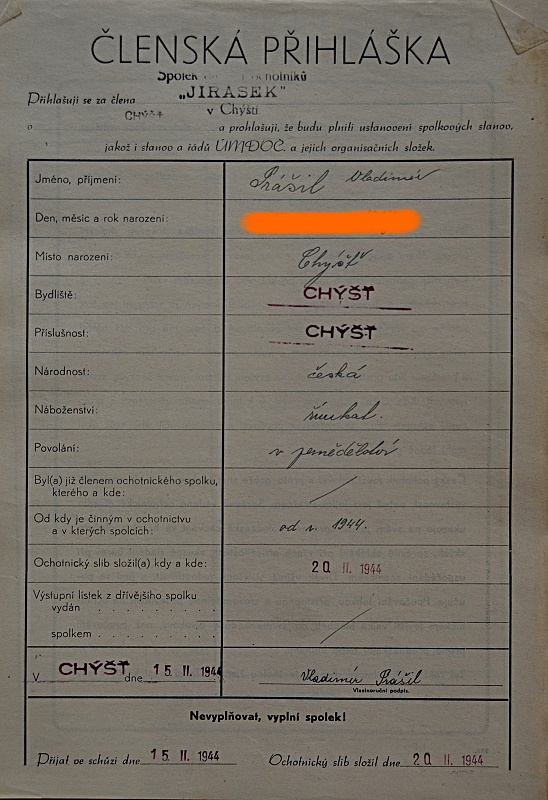 ČLENSKÁ PŘIHLÁŠKA
Spolek ochotníků
Přihlašuji se za člena „JIRASEK"
CHÝŠŤ v Chýšti
a prohlašuji, že budu plniti ustanovení spolkových stanov,
jakož i stanov a řádů ÚMDOČ. a jejich organisačních složek.
Jméno, příjmení: Prášil Vladimír
Den, měsíc a rok narození:
Místo narození: Chýšť
Bydliště: CHÝŠŤ
Příslušnost: CHÝŠŤ
Národnost: česká
Náboženství: římkat.
Povolání: v zemědělství
Byl(a) již členem ochotnického spolku,
kterého a kde: /
Od kdy je činným v ochotnictvu
a v kterých spolcích: od r. 1944.
Ochotnický slib složil(a) kdy a kde: 20 II. 1944
Výstupní lístek z dřívějšího spolku
vydán . . . . . . . .
spolkem . . . . . . . . /
V CHÝŠŤ dne 15 II. 1944 Vladimír Prášil
Vlastnoruční podpis.
Nevyplňovat, vyplní spolek!
Přijat ve schůzi dne 15 II. 1944 Ochotnický slib složil dne 20 II. 1944